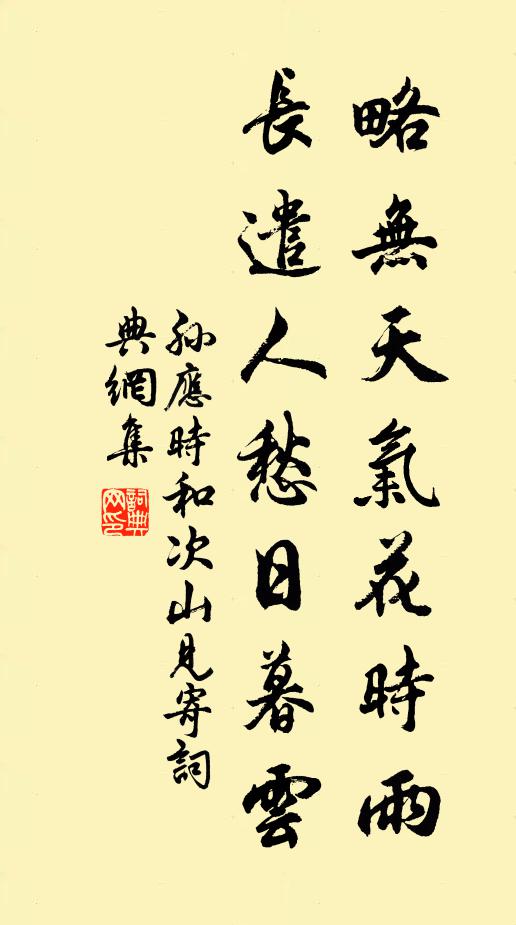 略無天氣花時雨
長遣人愁日暮雲
孫應時和次山見寄詞
典網集
詞典網印